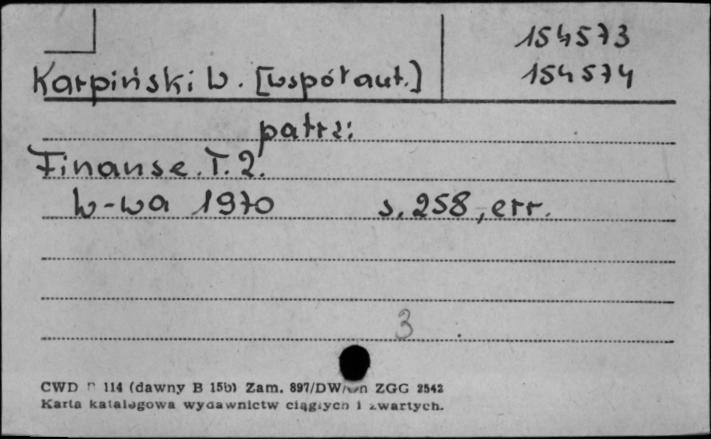 154573
Karpiński W. [współaut.]
154574
patrz:
Finanse. T. 2.
W-wa 1970 s. 258, err.
3
CWD 114 (dawny B 15b) Zam. 897/DW ZGG 2542
Karta katalogowa wydawnictw ciągłych i zwartych.